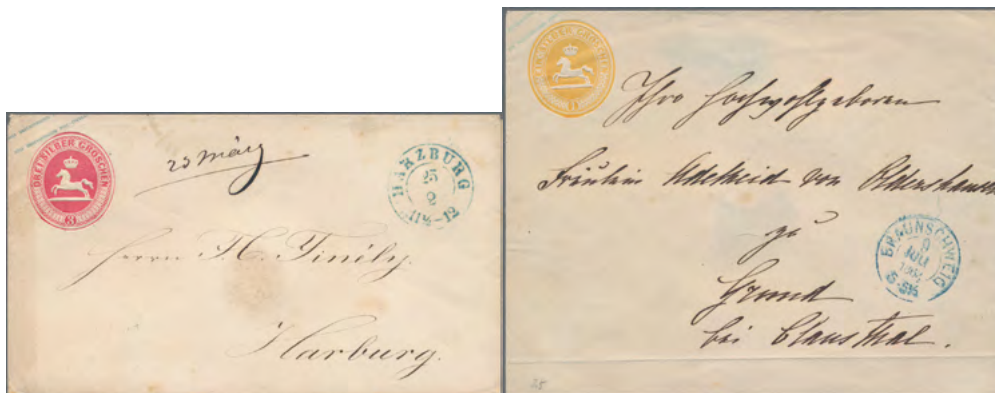 DREI SILBER GROSCHEN
3
25 März
HARZBURG
25
2
11½-12
Herrn H. Tinily.
Harburg.
EIN SILBER GROSCHEN
1
Ihro Hochwohlgeboren
Fräulein Adelheid von Oldershausen
zu
Grund
bei Clausthal.
BRAUNSCHWEIG
9
JULI
25